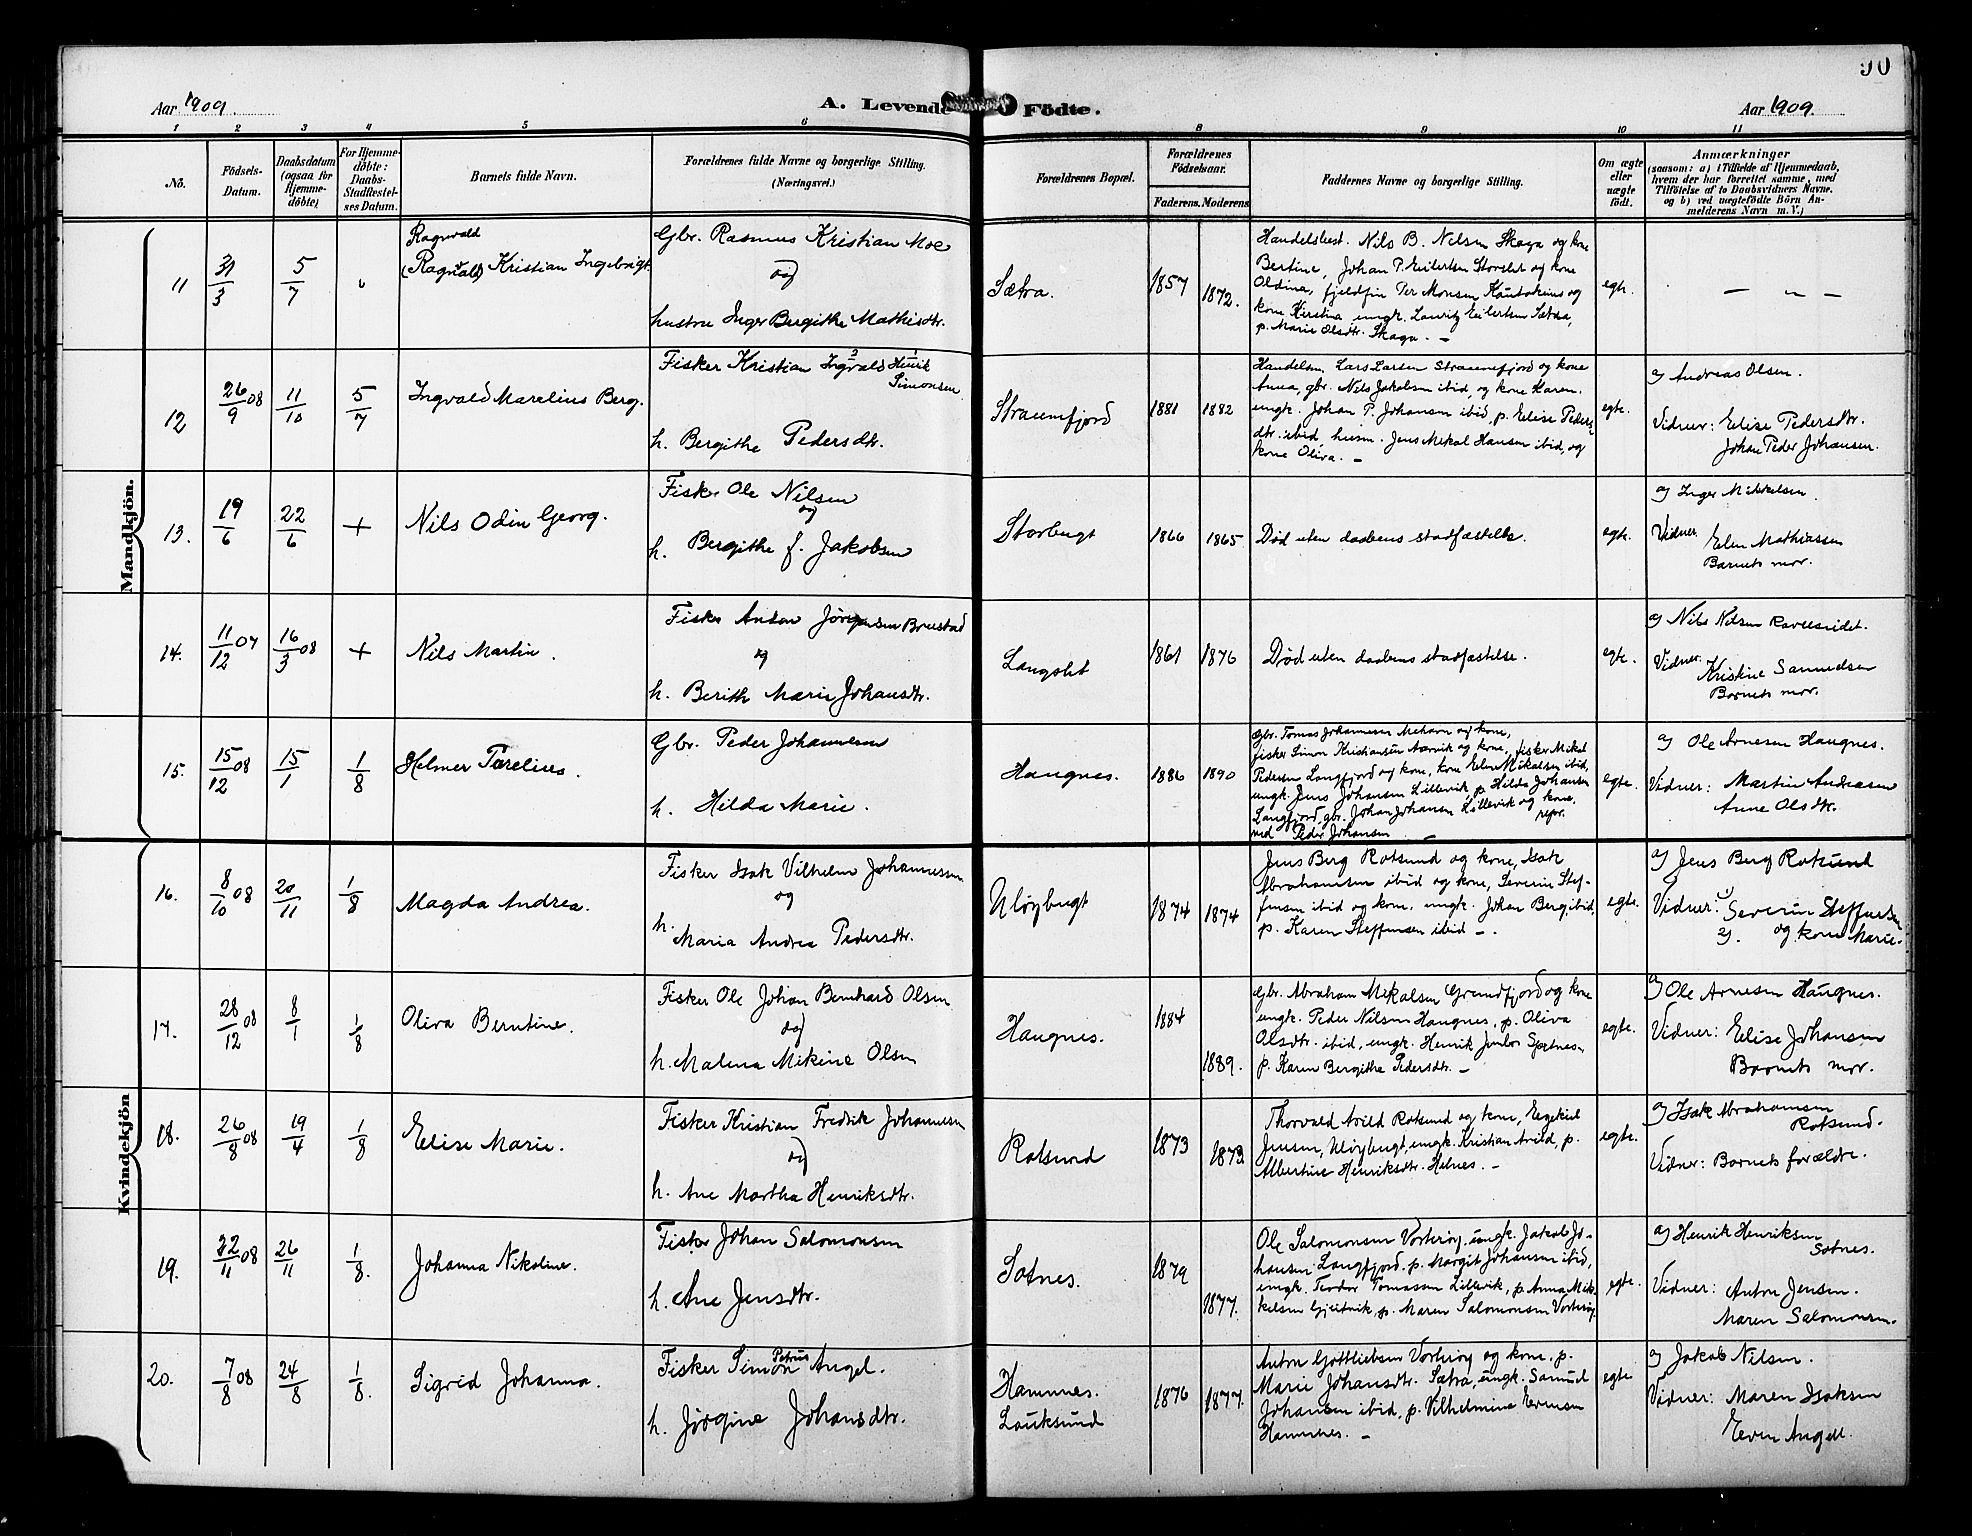 90
Aar 1909.
A. Levende Födte.
Aar 1909.
1 2 3 4 5 6 8 9 10 11
No.
Födsels-
Datum.
Daabsdatum
(ogsaa for
Hjemme-
döbte)
For Hjemme-
döbte:
Daabs-
Stadfæstel-
ses Datum.
Barnets fulde Navn.
Forældrenes fulde Navne og borgerlige Stilling.
(Næringsvei.)
Forældrenes Bopæl.
Forældrenes
Födselsaar.
Faderens. Moderens.
Faddernes Navne og borgerlige Stilling.
Om ægte
eller
uægte
födt.
Anmærkninger
(saasom: a) i Tilfælde af Hjemmedaab,
hvem der har forrettet samme, med
Tilföielse af to Daabsvidners Navne.
og b) ved uegtefödte Börn An-
melderens Navn m. V.)
Mandkjön.
11
31/3
5/7
Ragnvald
(Ragnvald) Kristian Ingebrigt
Gbr. Rasmus Kristian Moe
og
hustru Inger Bergithe Mathisdtr.
Sætra.
1857
1872.
Handelsbest. Nils B. Nelsen Skaga og kone
Bertine, Johan P. Eilertsen Storslet og kone
Oldina, fjeldfin Per Monsen Kautokeino og
kone Kirstina ungk. Lauritz Eilertsen Sætra,
p. Marie Olsdtr. Skaga. —
egte.
— " —
12
26/9 08
11/10
5/7
Ingvald Marelius Berg.
Fisker Kristian Ingvald Henrik
Simonsen
h. Bergithe Pedersdtr.
Straumfjord
1881
1882
Handelsm. Lars Larsen Straumfjord og kone
Anna, gbr. Nils Jakobsen ibid, og kone Karen.
ungk. Johan P. Johansen ibid, p. Elise Peders-
dtr. ibid, husm. Jens Mekal Hansen ibid, og
kone Oliva. —
egte.
a) Andreas Olsen.
Vidner: Elise Pedersdtr.
Johan Peder Johansen.
13.
19/6
22/6
+
Nils Odin Georg.
Fisker Ole Nilsen
og
h. Bergithe f. Jakobsen
Storbugt
1866
1865
Död uten daabens stadfæstelse.
egte.
a) Inger Mikkelsen.
Vidner. Elen Mathiassen
Barnets mor.
14.
11/12 07
16/3 08
+
Nils Martin.
Fisker Anton Jörgensen Brustad
og
h. Berith Marie Johansdtr.
Langslet
1861
1876
Död uten daabens stadfæstelse.
egte.
a) Nils Nilsen Raveseidet.
Vidner: Kristine Samuelsen
Barnets mor.
15.
15/12 08
15/1
1/8
Helmer Parelius.
Gbr. Peder Johannesen
h. Hilda Marie.
Haugnes.
1886
1890
gbr. Tomas Johannesen Mehavn og kone,
fisker Simon Kristiansen Aarvik og kone, fisker Mikal
Pedersen Langfjord og kone, kone Elen Mikalsen ibid,
ungk. Jens Johansen Lillevik, p. Hilda Johansen
Langfjord, gbr. Johan Johansen Lillevik og kone,
repr.
ved Peder Johansen —
egte.
a) Ole Arnesen Haugnes.
Vidner: Martin Andreasen
Anne Olsdtr.
Kvindekjön
16.
8/10 08
20/11
1/8
Magda Andrea.
Fisker Isak Vilhelm Johannessen
og
h.
Maria Andrea Pedersdtr.
Ulöybugt
1874
1874
Jens Berg Rotsund og kone, Isak
Abrahamsen ibid og kone, Severin Stef-
fensen ibid og kone, ungk. Johan Berg ibid.
p. Karen Steffensen ibid —.
egte.
a) Jens Berg Rotsund
Vidner: 1) Severin Steffensen
2). og kone Marie.
17.
28/12 08
8/1
1/8
Oliva Berntine.
Fisker Ole Johan Bernhard Olsen
og
h. Malena Mekine Olsen
Haugnes.
1884
1889.
Gbr. Abraham Mikalsen Grundfjord og kone
ungk. Peder Nilsen Haugnes, p. Oliva
Olsdtr. ibid, ungk. Henrik Junlor Spetnes,
p. Karen Bergithe Pedersdtr. —
egte.
a) Ole Arnesen Haugnes.
Vidner: Elise Johansen
Barnets mor.
18.
26/8 08
19/4
1/8
Elise Marie.
Fisker Kristian Fredrik Johannessen
og
h. Ane Martha Henriksdtr.
Rotsund
1873
1873.
Thorvald Avild Rotsund og kone, Ezekiel
Jensen, Ulöybugt, ungk. Kristian Avild, p.
Albertine Henriksdtr. Helnes. —
egte.
a) Isak Abrahamsen
Rotsund.
Vidner: Barnets forældre.
19.
22/11 08
26/11
1/8.
Johanna Nikoline.
Fisker Johan Salomonsen
h. Ane Jensdtr.
Sotnes.
1879
1877.
Ole Salomonsen Vorteröy, ungk. Jakob Jo-
hansen Langfjord. p. Margit Johansen ibid,
ungk. Teodor Tomassen Lillevik, p. Anna Mik-
kelsen Gjeitvik, p. Maren Salomonsen Vorteröy
egte.
a) Henrik Henriksen
Sotnes.
Vidner: Anton Jensen.
Maren Salomonsen.
20.
7/8 08
24/8
1/8.
Sigrid Johanna.
Fisker Simon Petrus Angel.
h. Jörgine Johansdtr.
Hamnes.
Lauksund
1876
1877.
Anton Gottliebsen Vorteröy og kone, p.
Marie Johansdtr. Sætra, ungk. Samuel
Johansen ibid, p. Vilhelmine Evensen
Hamnes. —
egte
a) Jakob Nilsen.
Vidner: Maren Isaksen
Even Angell.